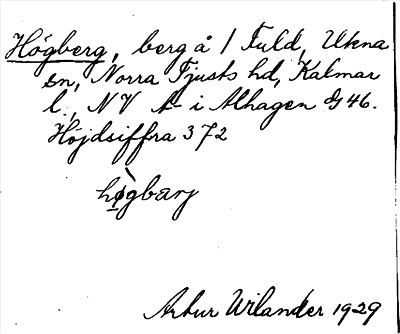 Högberg, berg å / Fuld, Ukna
sn, Norra Tjusts hd, Kalmar
l., NV A- i Alhagen G46.
Höjdsiffra 372
hø̀gbarj
Artur Wilander 1929